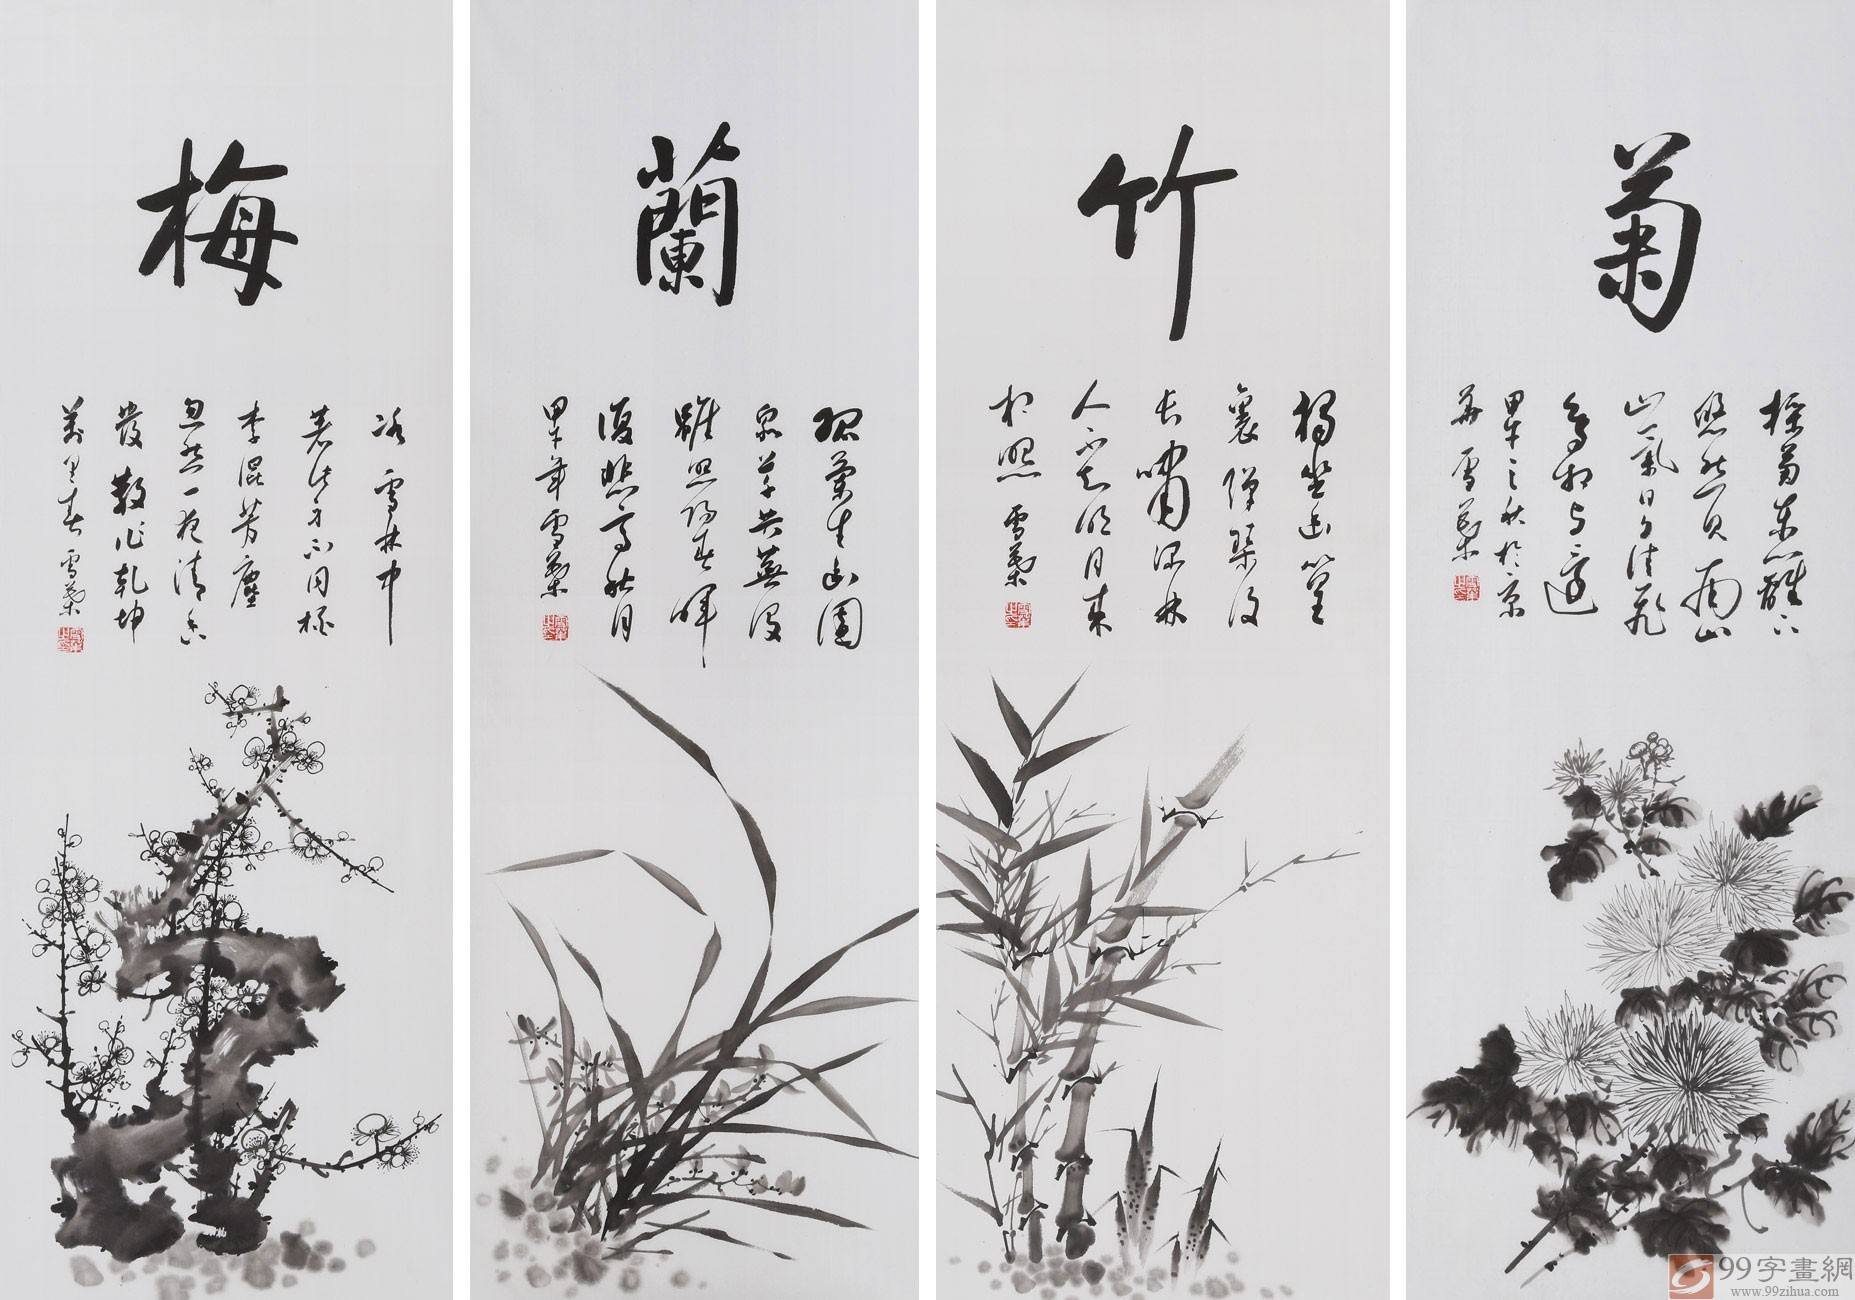 梅
冰雪林中
著此身不同桃
李混芳塵
忽然一夜清香
發散作乾坤
萬里春 雪
蘭
孤蘭生幽園
眾草共蕪沒
雖照陽春暉
復悲高秋月
甲午年雪
竹
獨坐幽篁
裏彈琴復
長嘯深林
人不知明月來
相照 雪
菊
採菊東籬下
悠然見南山
山氣日夕佳飛
鳥相与還
甲午之秋於京
華 雪
99字畫網
www.99zihua.com